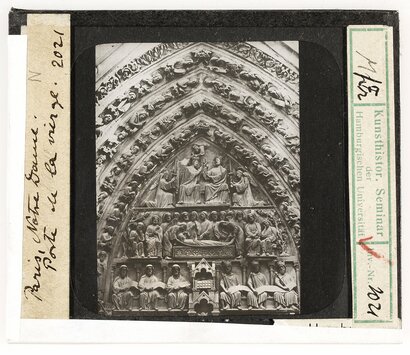 Paris, Notre Dame.
Porte de la vierge. 2021
N
Kunsthistor. Seminar
der
Hamburgischen Universität
Nr. 1021